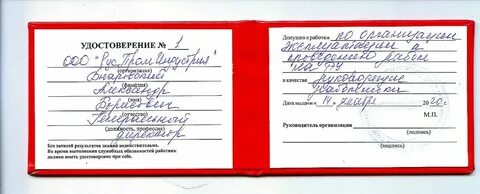 УДОСТОВЕРЕНИЕ № 1
ООО "РусПромИндустрия"
(организация)
(фамилия)
Александр
(имя)
Борисович
(отчество)
Генеральный
(должность, профессия)
директор
Без записей результатов знаний недействительно.
Во время выполнения служебных обязанностей работник
должен иметь удостоверение при себе.
Допущен к работам по организации
эксплуатации и
проведению работ
в качестве руководящие
работники
Дата выдачи « 14 декабр 2020 г.
(подпись)
М.П.
Руководитель организации
(подпись)